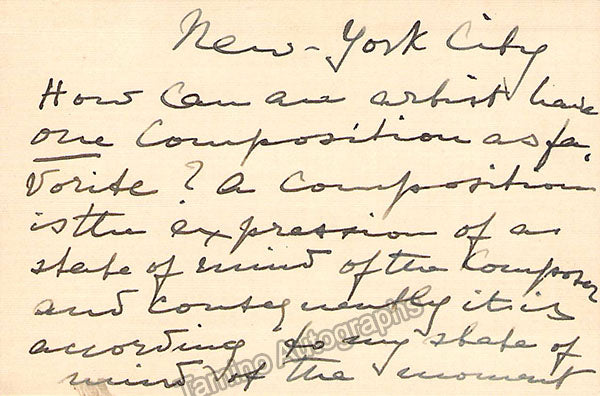 New-York City
How can an artist have
one composition as fa,
vorite? A composition
is the expression of a
state of mind of the Composer
and consequently it is
according to my state of
mind of the moment
Tamino Autographs